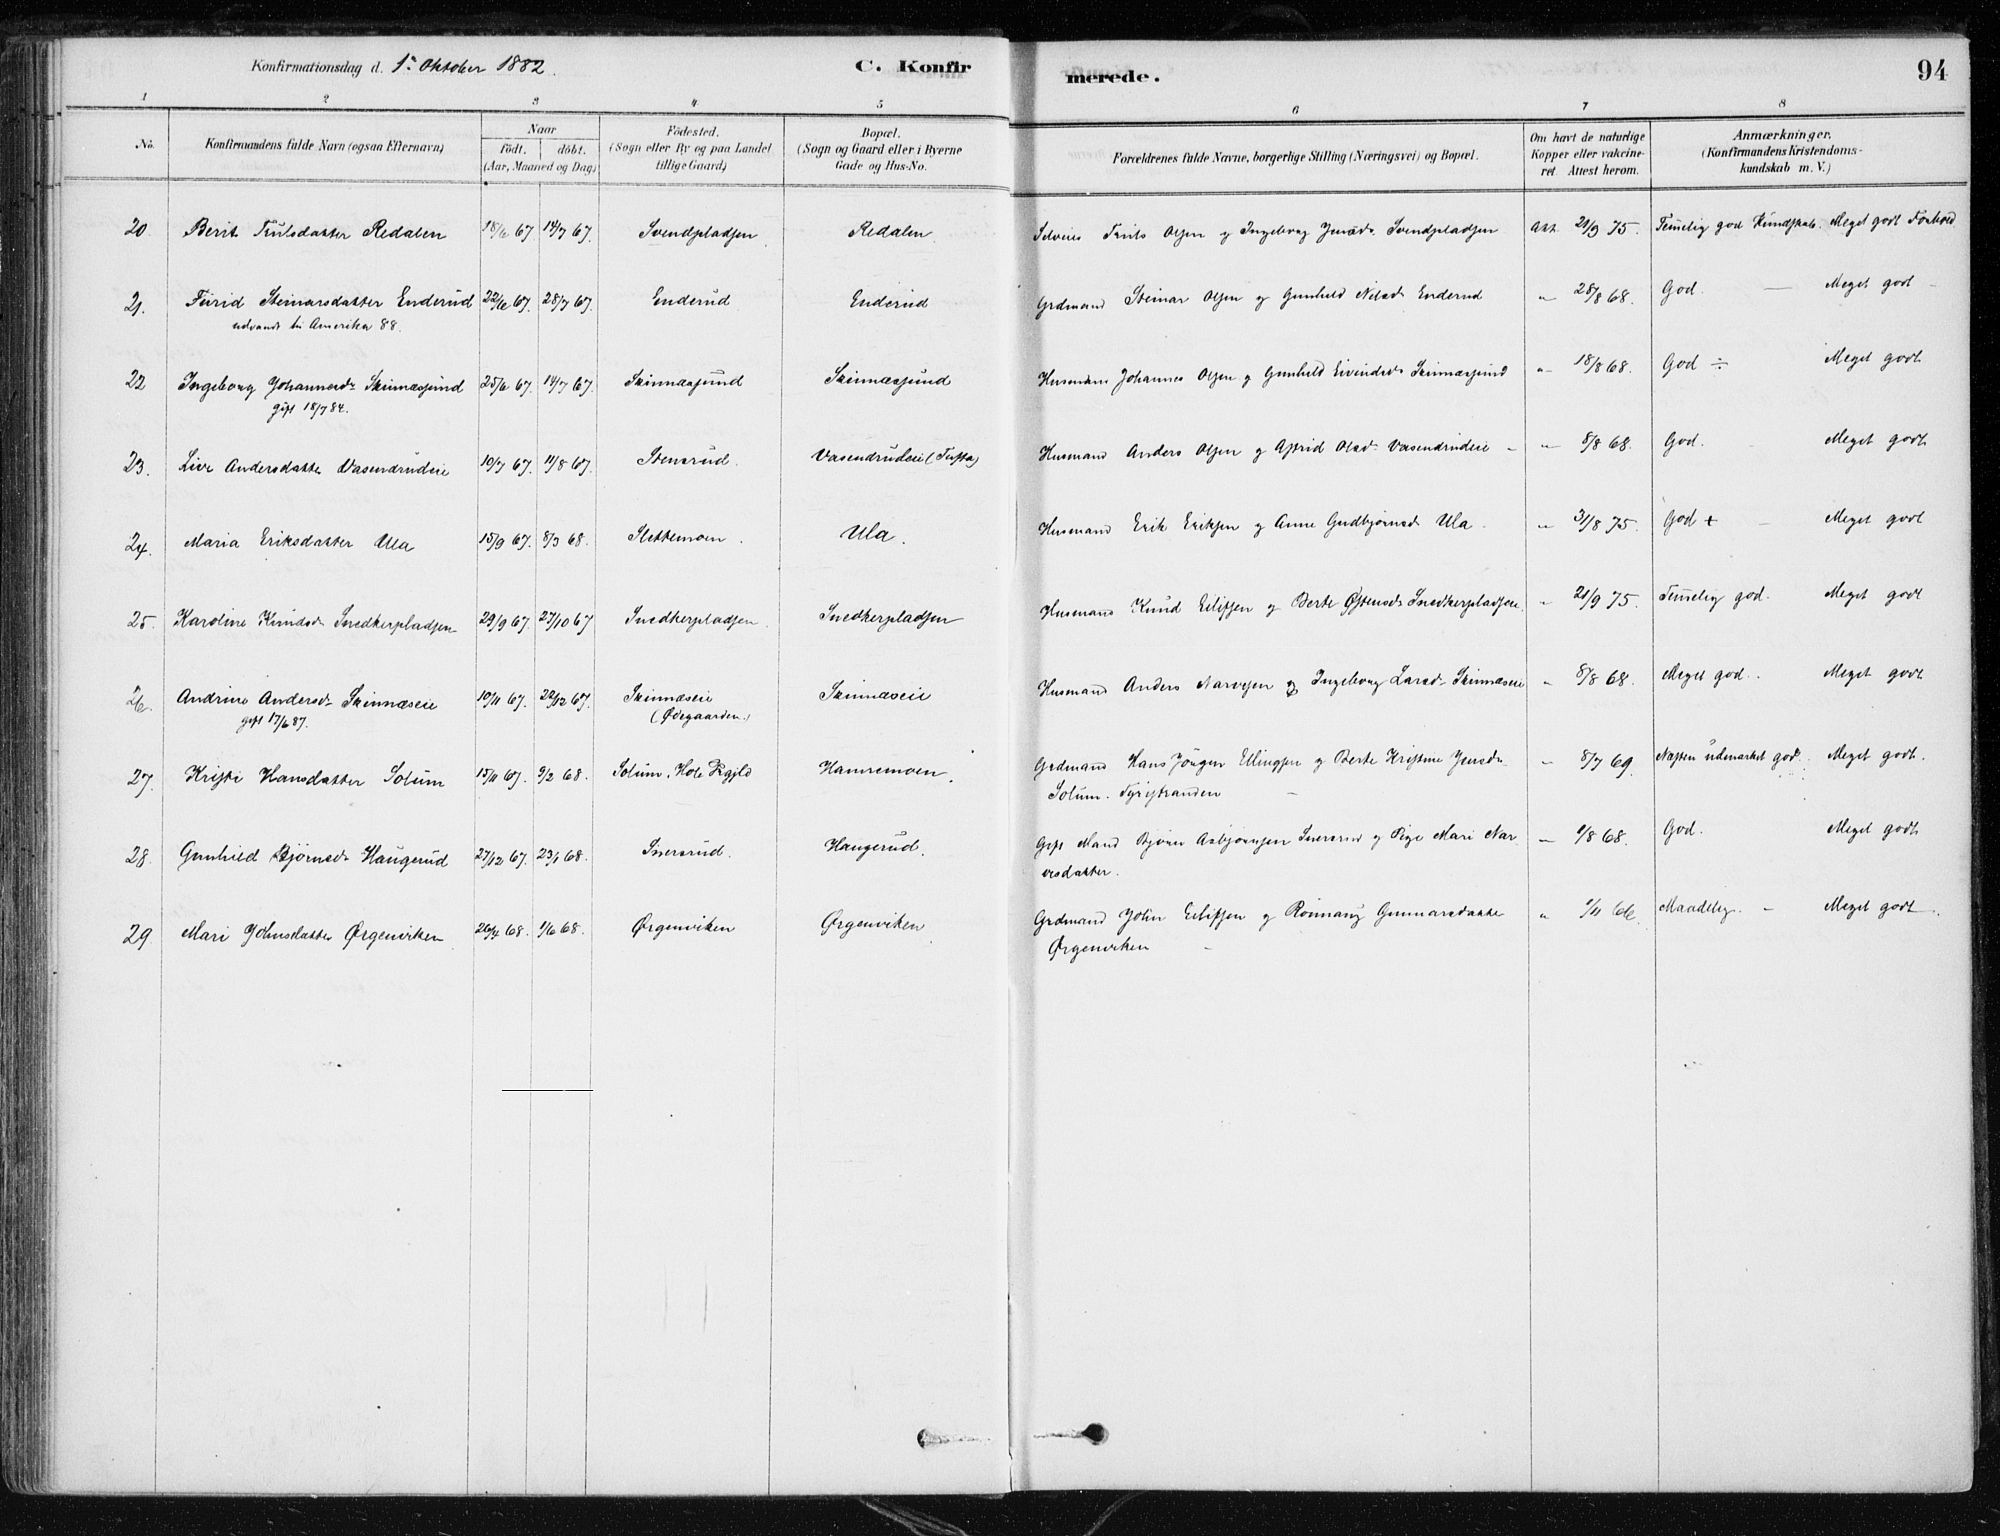 Konfirmationsdag d. 1ste Oktober 1882. C. Konfirmerede. 94
1 2 3 4 5 6 7 8
No.
Konfirmandens fulde Navn (ogsaa Efternavn)
Naar
födt. döbt.
(Aar, Maaned og Dag)
Födested.
(Sogn eller By og paa Landet
tillige Gaard)
Bopæl.
(Sogn og Gaard eller i Byerne
Gade og Hus-No.
Forældrenes fulde Navne, borgerlige Stilling (Næringsvei) og Bopæl.
Om havt de naturlige
Kopper eller vakcine-
ret. Attest herom.
Anmærkninger.
(Konfirmandens Kristendoms-
kundskab m. V.)
20 Berit Trulsdatter Redalen 18/6 67 14/7 67. Svendpladsen Redalen Selveier Truls Olsen og Ingeborg Jensd. Svendpladsen Att. 21/9 75. Temmelig god Kundskab. Meget godt Forhold
21. Turid Steinarsdatter Enderud 22/6 67. 28/7 67. Enderud Enderud Grdmand Steinar Olsen og Gunhild Nilsd. Enderud " 28/8 68. God. — Meget godt
udvandr. til Amerika 88.
22 Ingeborg Johannesd. Skinnæssund 25/6 67 14/7 67. Skinnæssund Skinnæssund Husmand Johannes Olsen og Gunhild Eivindsd. Skinnæssund " 18/8 68. God ÷ Meget godt
gift 18/7 84.
23. Live Andersdatter Vasendrudeie 10/7 67. 11/8 67. Stensrud. Vasendrudeie (Tufta) Husmand Anders Olsen og Astrid Olsd. Vasendrudeie " 8/8 68. God. Meget godt
24. Maria Eriksdatter Ula 15/9 67. 8/3 68. Slettemoen Ula. Husmand Erik Eriksen og Anne Gudbjørnsd. Ula. " 31/8 75. God + — Meget godt
25. Karoline Knudsd. Snedkerpladsen 29/9 67. 27/10 67 Snedkerpladsen Snedkerpladsen Husmand Knud Eilifsen og Berte Østensd. Snedkerpladsen. " 21/9 75. Temmelig god. Meget godt
26. Andrine Andersd. Skinnæseie 10/11 67. 22/12 67. Skinnæseie Skinnæseie Husmand Anders Narvesen og Ingeborg Larsd. Skinnæseie " 8/8 68. Meget god. Meget godt
gift 17/6 87. (Ødegaarden.)
27. Kristi Hansdatter Solum 15/11 67. 9/2 68. Solum, Hole Prgjld Hamremoen. Grdmand Hans Jörgen Ellingsen og Berte Kristine Jensd. " 8/7 69. Næsten udmærket god. Meget godt.
Solum. Tyristranden
28. Gunhild Bjørnsd. Haugerud 27/12 67. 23/1 68. Snersrud. Haugerud. Gift Mand Bjørn Asbjørnsen Snersrud og Pige Mari Nar- " 1/8 68. God. Meget godt
vesdatter.
29 Mari Johnsdatter Ørgenviken 26/4 68. 1/6 68. Ørgenviken Ørgenviken Grdmand John Eilifsen og Rönnaug Gunnarsdatter " 1/11 66. Maadelig. — Meget godt.
Ørgenviken